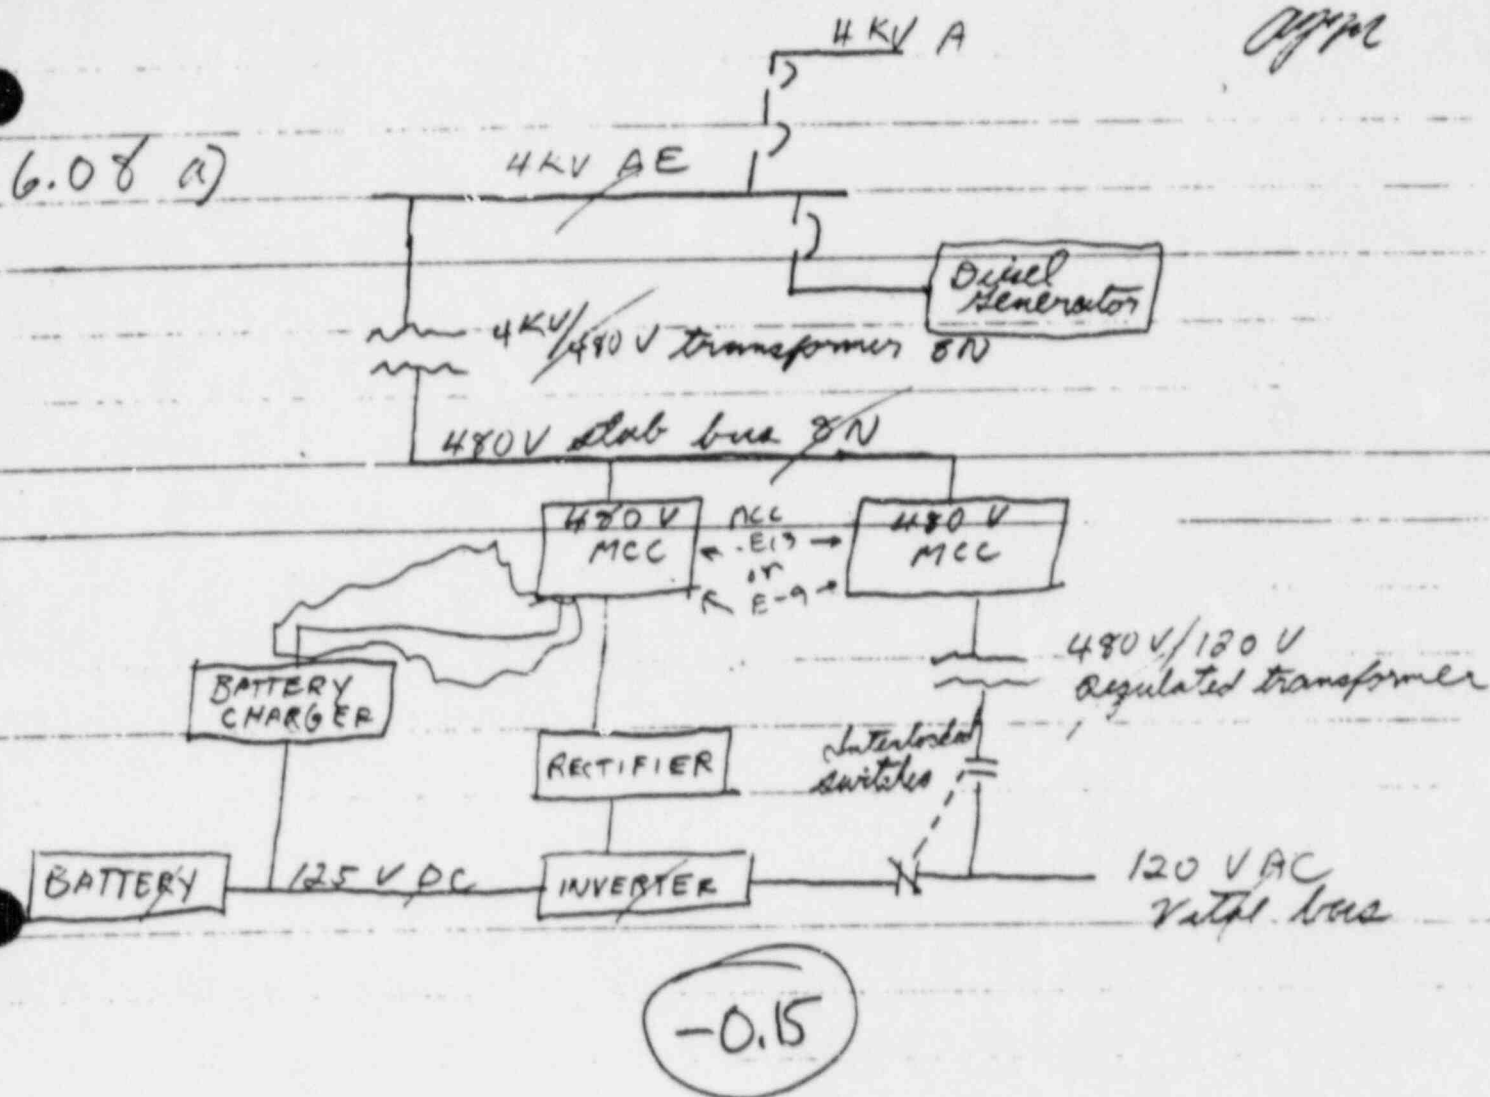 4 KV A
6.08 a)
4KV AE
Diesel
Generator
4KV/480V transformer 8N
480V stub bus 8N
480 V
MCC
MCC
E13
or
E-9
480 V
MCC
480V/120V
Regulated transformer
BATTERY
CHARGER
RECTIFIER
Interlocked
switches
BATTERY
125 V DC
INVERTER
120 V AC
Vital bus
-0.15